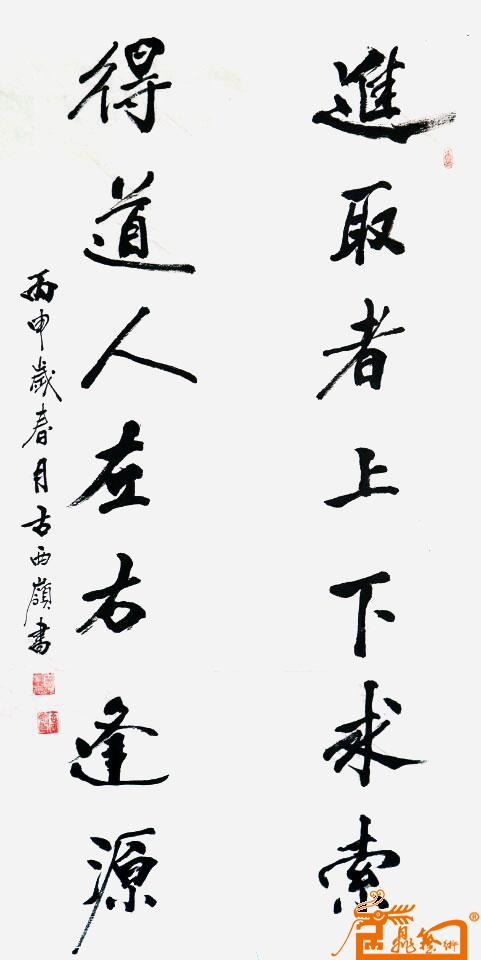 進取者上下求索
得道人左右逢源
丙申歲春月古西嶺書